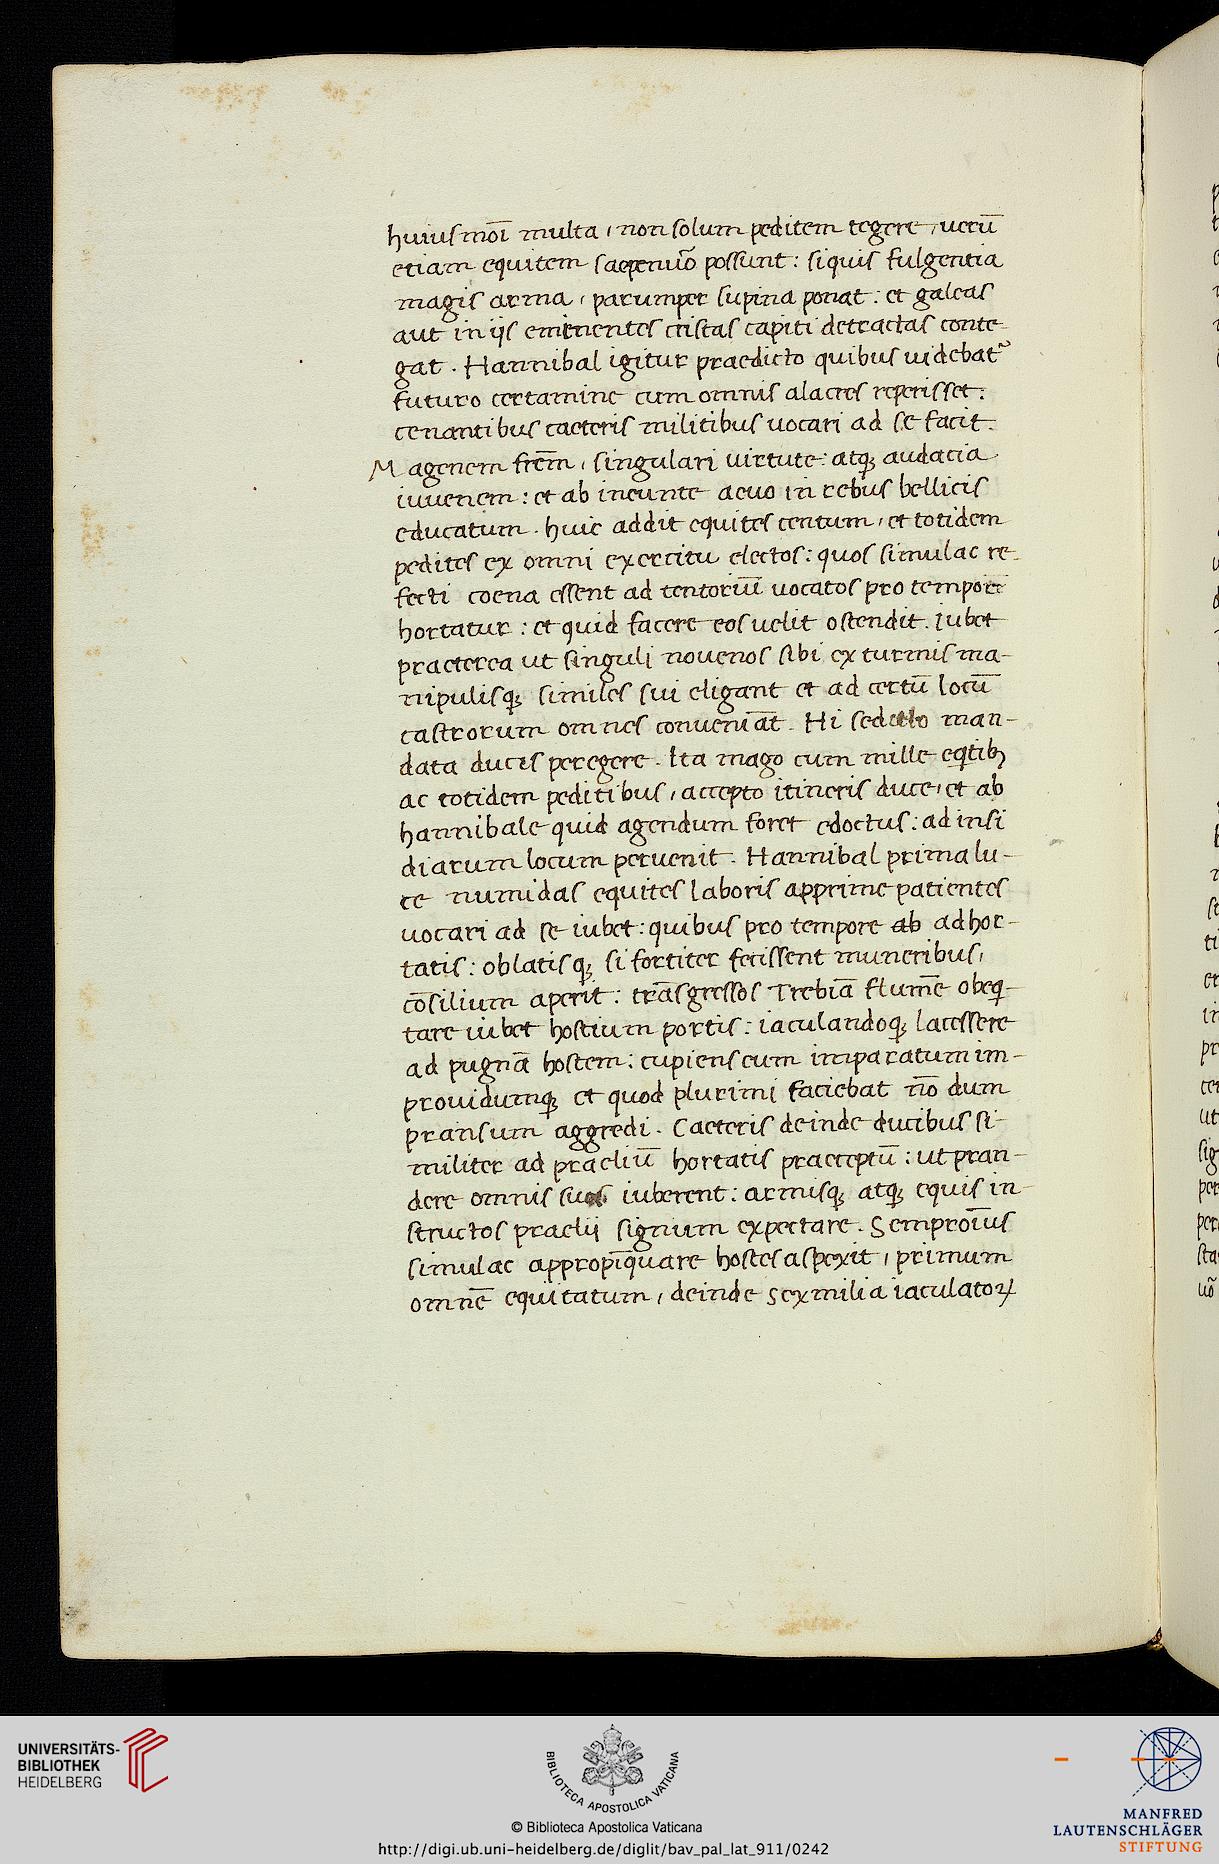 huiusmoi multa, non solum peditem tegere, uerū
etiam equitem saepenuō possunt: siquis fulgentia
magis arma, parumper supina ponat: et galeas
aut in ijs eminentes cristas capiti detractas conte-
gat. Hannibal igitur praedicto quibus uidebat᷑
futuro certamine cum omnis alacres reperisset:
cenantibus caeteris militibus uocari ad se facit.
Magenem frēm, singulari uirtute: atq; audacia
iuuenem: et ab ineunte aeuo in rebus bellicis
educatum. huic addit equites centum, et totidem
pedites ex omni exercitu electos: quos simulac re-
fecti coena essent ad tentoriū uocatos pro tempore
hortatur: et quid facere eos uelit ostendit. iubet
praeterea ut singuli nouenos sibi ex turmis ma-
nipulisq; similes sui eligant et ad certū locū
castrorum omnes conueniāt. Hi sedullo man-
data ducis peregere. Ita mago cum mille eqtib;
ac totidem peditibus, accepto itineris duce, et ab
hannibale quid agendum foret edoctus: ad insi
diarum locum peruenit. Hannibal prima lu-
ce numidas equites laboris apprime patientes
uocari ad se iubet: quibus pro tempore ab adhor-
tatis: oblatisq; si fortiter fecissent muneribus,
cōsilium aperit: trāsgressos Trebiā flumē obeq-
tare iubet hostium portis: iaculandoq; lacessere
ad pugnā hostem: cupiens eum imparatum im-
prouidumq; et quod plurimi faciebat nō dum
pransum aggredi. Caeteris deinde ducibus si-
militer ad praeliū hortatis praeceptū: ut pran-
dere omnis suos iuberent: armisq; atq; equis in-
structos praelij signum expectare. Semproīus
simulac appropīquare hostes aspexit, primum
omnē equitatum, deinde sex milia iaculatoꝝ
UNIVERSITÄTS-
BIBLIOTHEK
HEIDELBERG
BIBLIOTECA APOSTOLICA VATICANA
© Biblioteca Apostolica Vaticana
http://digi.ub.uni-heidelberg.de/diglit/bav_pal_lat_911/0242
MANFRED
LAUTENSCHLÄGER
STIFTUNG